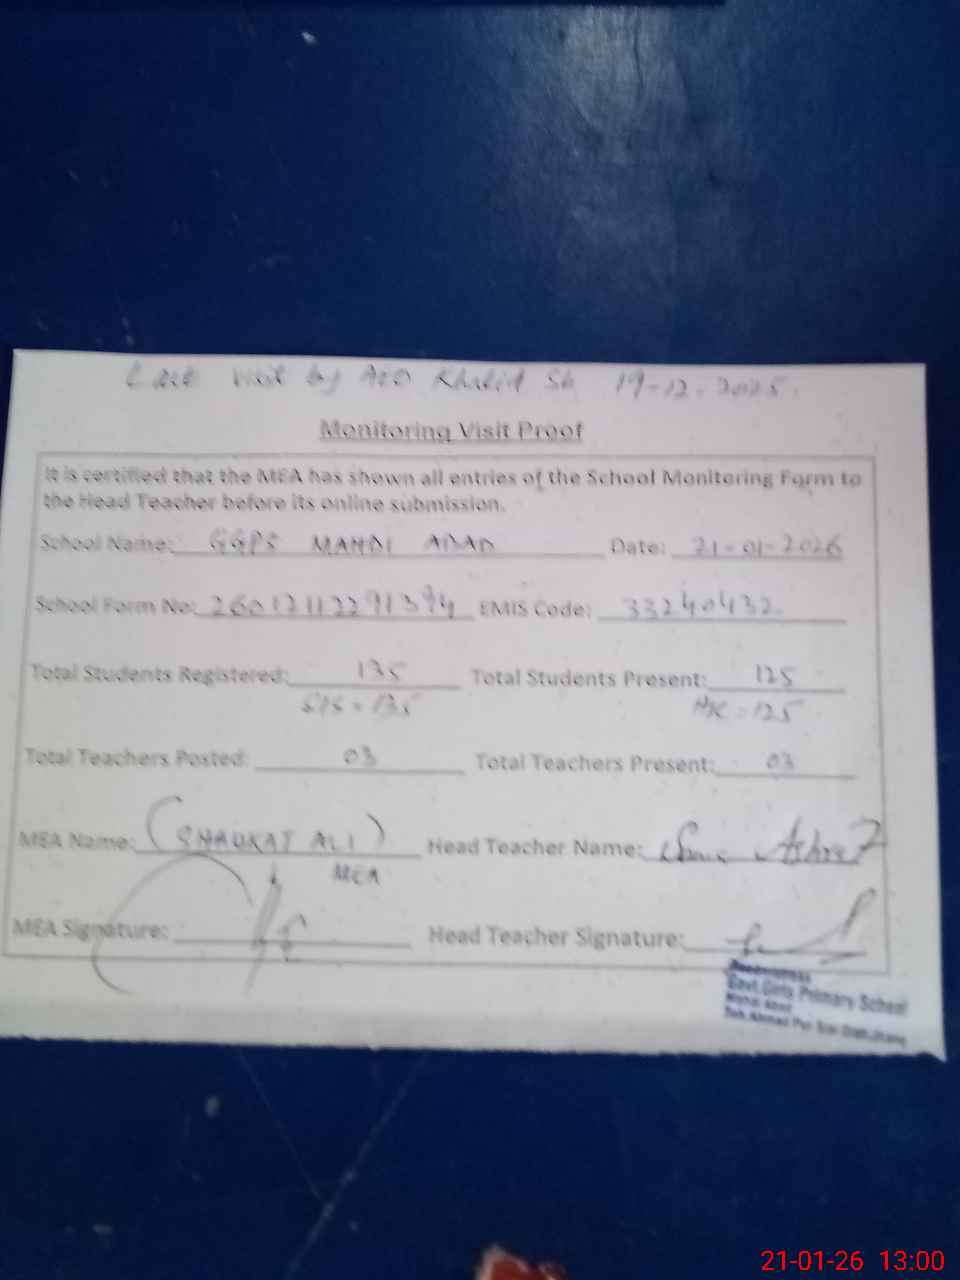 Last visit by AEO Khalid Sb 19-12-2025.
Monitoring Visit Proof
It is certified that the MEA has shown all entries of the School Monitoring Form to
the Head Teacher before its online submission.
School Name: GGPS MAHDI ABAD Date: 21-01-2026
School Form No: 26012112291394 EMIS Code: 33240432
Total Students Registered: 135 Total Students Present: 125
SIS = 135 = 125
Total Teachers Posted: 03 Total Teachers Present: 03
MEA Name: (SHAUKAT ALI) Head Teacher Name: Ashraf
MEA
MEA Signature: Head Teacher Signature:
Headmistress
Govt. Girls Primary School
Mahdi Abad
Teh. Ahmad Pur Sial Distt. Jhang
21-01-26 13:00